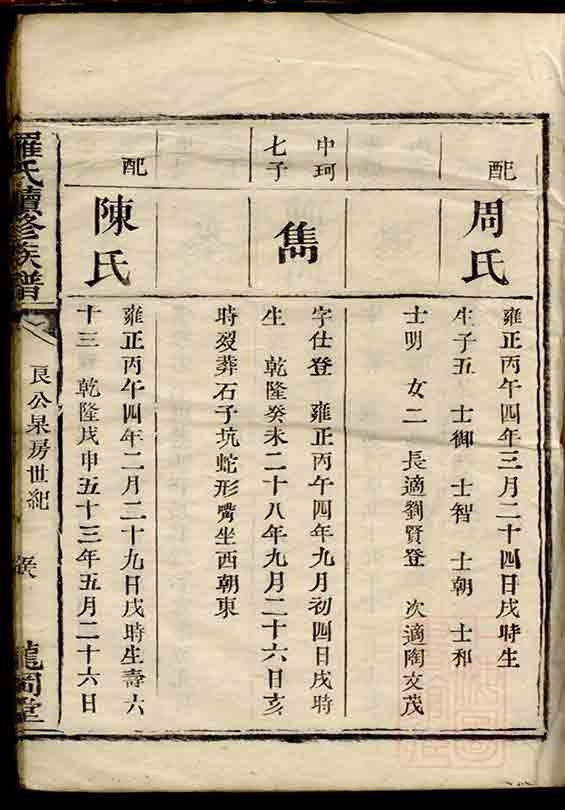 配
周氏
雍正丙午四年三月二十四日戌時生
生子五 士御 士智 士朝 士和
士明 女二 長適劉賢登 次適陶文茂
中珂
七子
雋
字仕登 雍正丙午四年九月初四日戌時
生 乾隆癸未二十八年九月二十六日亥
時歿葬石子坑蛇形嘴坐西朝東
配
陳氏
雍正丙午四年二月二十九日戌時生壽六
十三 乾隆戊申五十三年五月二十六日
羅氏續修族譜
艮公杲房世紀
龍岡堂